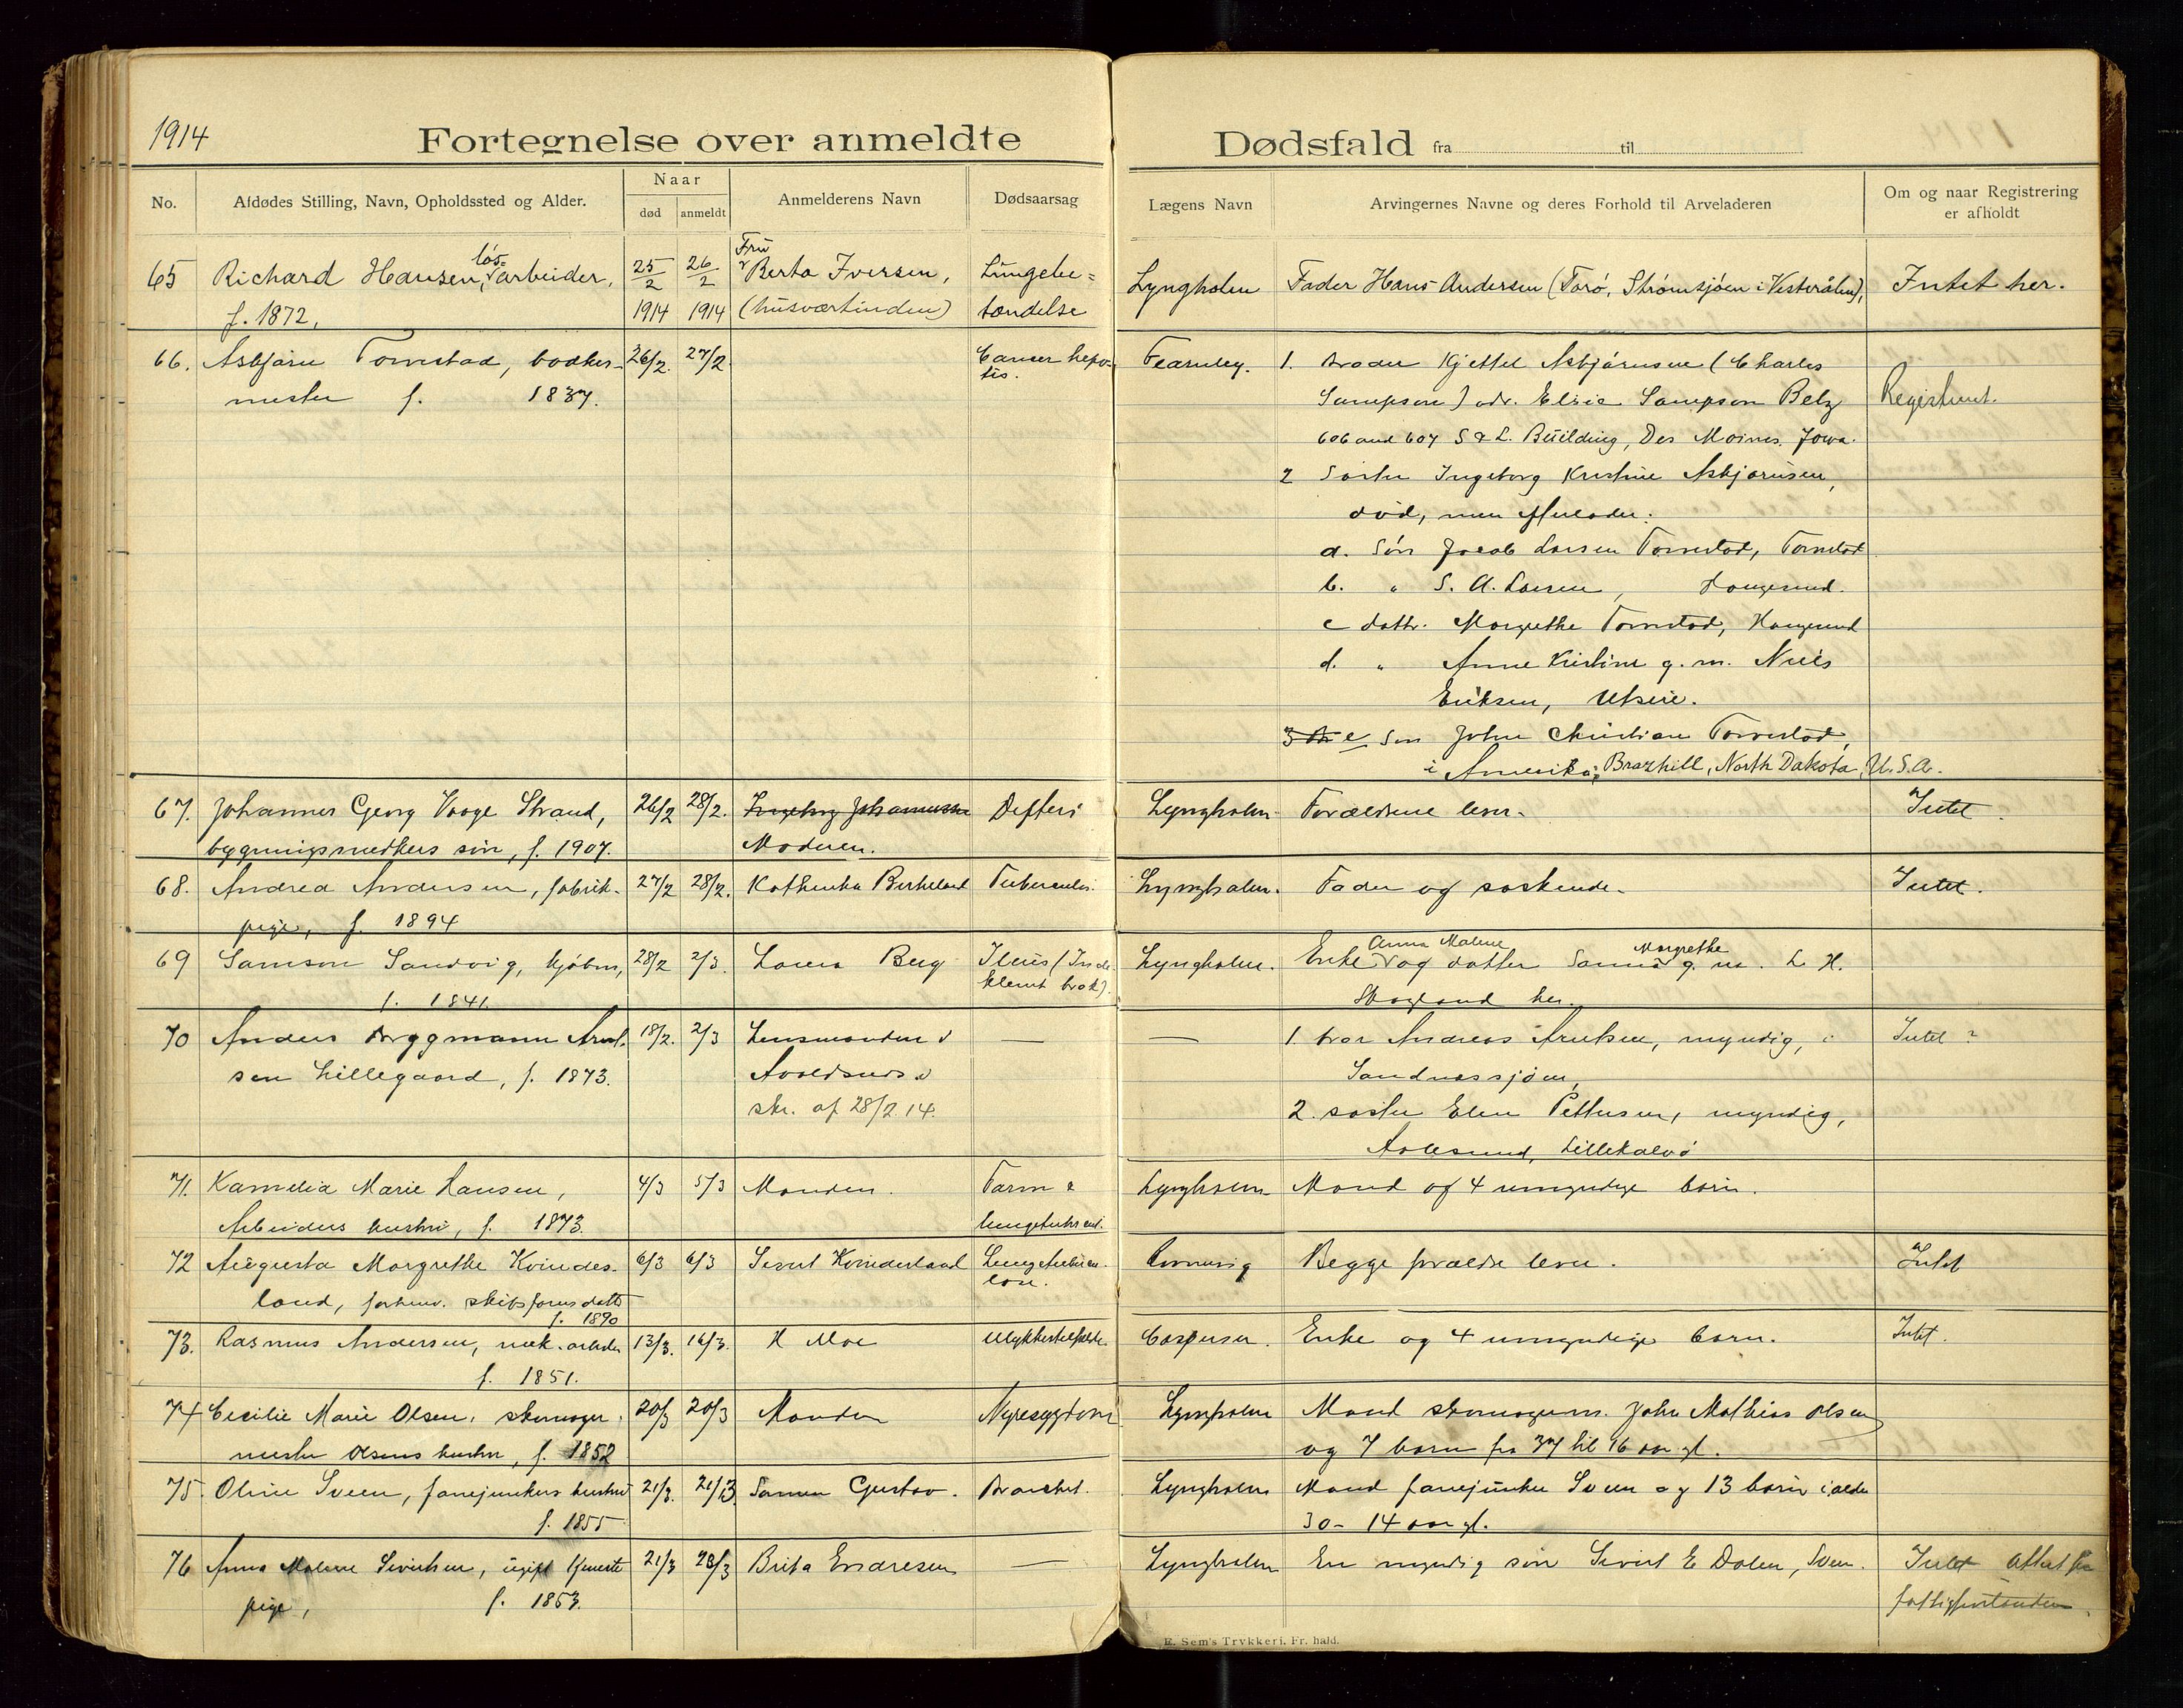 1914
Fortegnelse over anmeldte Dødsfald fra til
No.
Afdødes Stilling, Navn, Opholdssted og Alder.
Naar
død
anmeldt
Anmelderens Navn
Dødsaarsag
Lægens Navn
Arvingernes Navne og deres Forhold til Arveladeren
Om og naar Registrering
er afholdt
65 Richard Hansen, løsarbeider, 25/2 26/2 Fru Berta Iversen, Lungebe= Lyngholm Fader Hans Andersen (Torø, Strømsjøen i Vesterålen), Intet her.
f. 1872, 1914 1914 (husværtinden) tændelse
66. Asbjørn Torvestad, bødker- 26/2. 27/2. Cancer hepa- Fearnley. 1. Broder Kjettel Asbjørnsen (Charles
tis.
mester f. 1837. Sampson) adr. Elsie Sampson Belz Registrert.
606 and 607 S & L. Building, Des Moines. Jowa.
2 Søster Ingeborg Kristine Asbjørnsen,
død, men efterlader:
a. Søn Jacob Larsen Torvestad, Torvestad
b. " S. A. Larsen, Haugesund.
c dattr. Margrethe Torvestad, Haugesund
d. " Anne Kristine g. m. Nils
Eriksen, Utsire.
3 e Søn John Christian Torvestad,
i Amerika, Brazhill, North Dakota, U.S.A.
67. Johannes Georg Vaage Strand, 26/2 28/2. Ingeborg Johannessen Difteri Lyngholm Forældrene lever. Intet
bygningssnedkers søn, f. 1907. Moderen.
68. Andrea Andersen, fabrik- 27/2 28/2. Kathinka Birkeland Tuberculos. Lyngholm. Fader og søskende. Intet.
pige, f. 1894
69 Samson Sandvig, kjøbm, 28/2 2/3. Laura Berg Ileus (Inde- Lyngholm. Enke Anna Malene og datter Sanna Margrethe g. m. L. H.
f. 1841. klemt brok). Skogland her.
70 Anders Bryggmann Arnt- 18/2. 2/3 Lensmanden i — — 1. bror Andreas Arntsen, myndig, i Intet ?
sen Lillegaard, f. 1873. Avaldsnes Sandnessjøen,
skr. af 28/2 14. 2. søster Elen Pettersen, myndig,
Aalesund, Lillekalvø
71. Kamelia Marie Hansen, 4/3 5/3 Manden. Tarm & Lyngholm Mand og 4 umyndige børn.
Arbeiders hustru, f. 1873. lungetuberkul.
72 Augusta Margrethe Kvindes- 6/3 6/3 Sivert Kvindesland Lungetuberku- Begge forældre lever. Intet
land, forhenv. skibsførers datter lose.
f. 1890
73. Rasmus Andersen, mek. arbeider 13/3. 16/3. H Moe Ulykkestilfælde Caspersen. Enke og 4 umyndige børn. Intet.
f. 1851.
74 Cecilie Marie Olsen, skomager- 20/3 20/3 Manden Nyresygdom Lyngholm Mand skomagerm. John Mathias Olsen
mester Olsens hustru, f. 1852 og 7 børn fra 37 til 16 aar gl.
75. Oline Sveen, fanejunkers hustru 21/3. 21/3 Gustav. Lyngholm Mand fanejunker Sveen og 13 børn i alder
f. 1855 30 - 14 aar gl.
76 Anna Malene Sivertsen, ugift tjeneste 21/3 23/3 Brita Endresen — Lyngholm En myndig søn Sivert E Dalen, Sveen. Intet Attest fra
pige, f. 1853. fattigforstanderen.
E. Sem's Trykkeri, Fr. hald.